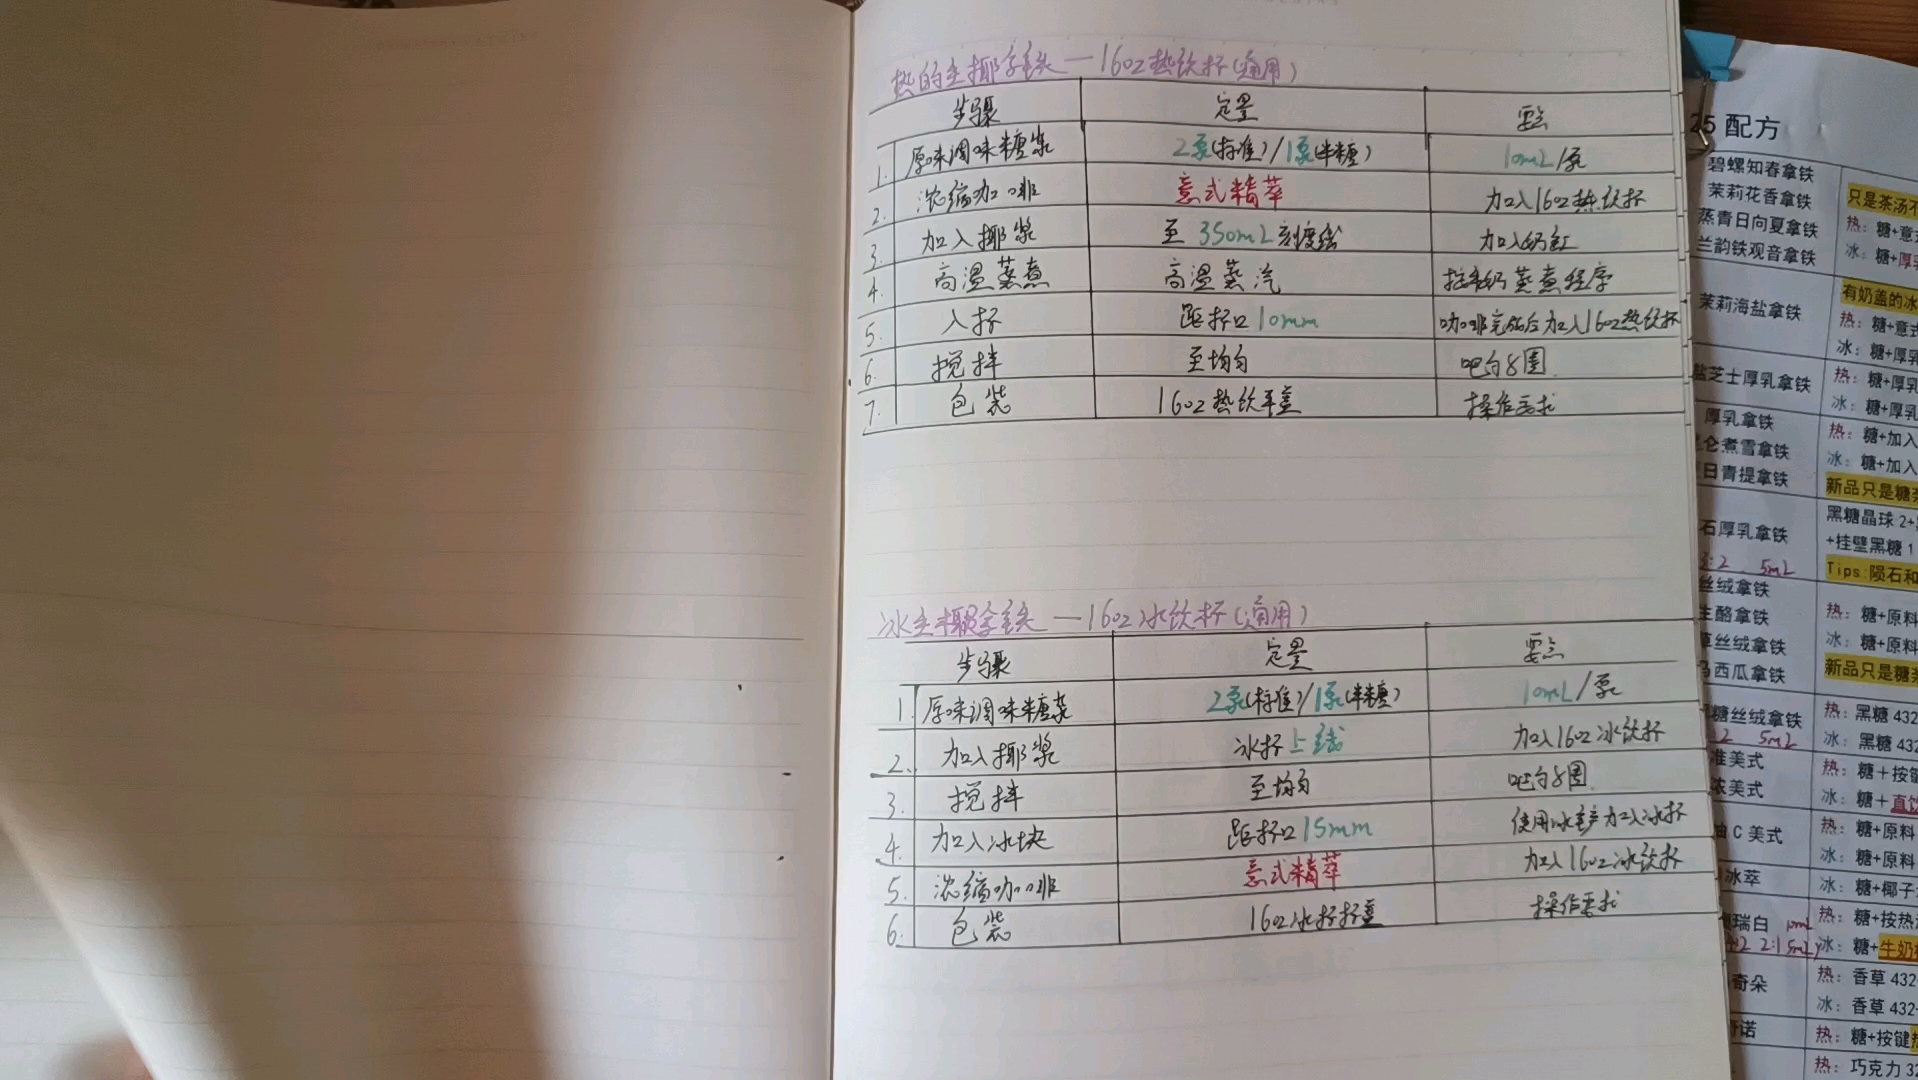 热的生椰拿铁—16oz热饮杯(通用)
步骤 定量 要点
1. 原味调味糖浆 2泵(标准)/1泵(半糖) 10mL/泵
2. 浓缩咖啡 意式精萃 加入16oz热饮杯
3. 加入椰浆 至350mL刻度线 加入奶缸
4. 高温蒸煮 高温蒸汽 按牛奶蒸煮程序
5. 入杯 距杯口10mm 咖啡完成后加入16oz热饮杯
6. 搅拌 至均匀 吧勺8圈
7. 包装 16oz热饮平盖 操作要求
冰生椰拿铁—16oz冰饮杯(通用)
步骤 定量 要点
1. 原味调味糖浆 2泵(标准)/1泵(半糖) 10mL/泵
2. 加入椰浆 冰杯上线 加入16oz冰饮杯
3. 搅拌 至均匀 吧勺8圈
4. 加入冰块 距杯口15mm 使用冰铲加入冰杯
5. 浓缩咖啡 意式精萃 加入16oz冰饮杯
6. 包装 16oz冰杯杯盖 操作要求
25配方
碧螺知春拿铁
茉莉花香拿铁
蒸青日向夏拿铁
兰韵铁观音拿铁
只是茶汤不
热：糖+意式
冰：糖+厚乳
茉莉海盐拿铁
有奶盖的冰
热：糖+意式
冰：糖+厚乳
盐芝士厚乳拿铁
热：糖+厚乳
冰：糖+厚乳
厚乳拿铁
仑煮雪拿铁
日青提拿铁
热：糖+加入
冰：糖+加入
新品只是糖
石厚乳拿铁
:2 5mL
黑糖晶球 2+
+挂壁黑糖 1
Tips 陨石和
丝绒拿铁
生酪拿铁
丝绒拿铁
西瓜拿铁
热：糖+原料
冰：糖+原料
新品只是糖
糖丝绒拿铁
2 5mL
热：黑糖 432
冰：黑糖 432
准美式
浓美式
热：糖+按键
冰：糖+直饮
C 美式
热：糖+原料
冰：糖+原料
冰萃
冰：糖+椰子
瑞白 10mL
2 2:1 5mL
热：糖+按热
冰：糖+牛奶
奇朵
热：香草 432
冰：香草 432
诺
热：糖+按键
热：巧克力 32